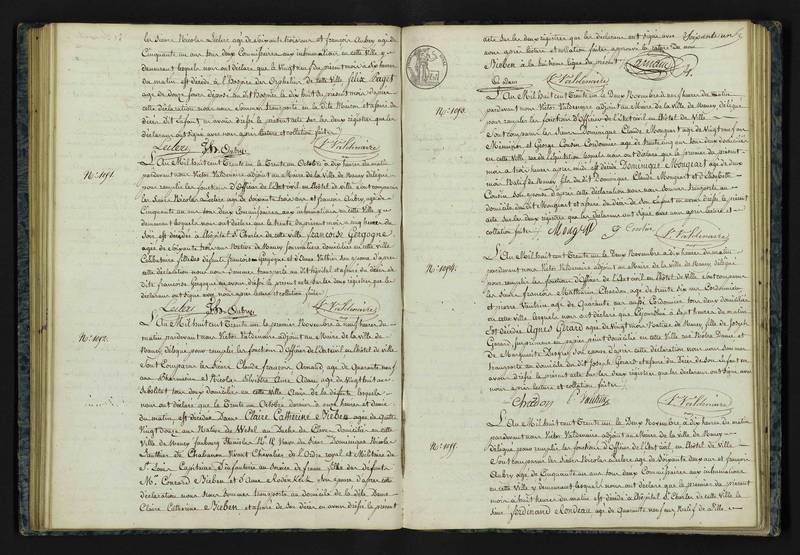 les Sieurs Nicolas Leclerc agé de soixante trois ans et françois Aubry agé de
Cinquante un ans tous deux Commissaires aux inhumations en cette Ville y
demeurant lesquels nous ont déclaré que le vingt neuf du présent mois a dix heures
du matin est décédé a l'hospice des Orphelins de cette Ville félix
agé de douze jours déposé au dit hospice le dix huit du présent mois d'après
cette déclaration nous nous sommes transportés en la dite Maison et assuré du
décès dit Enfant en avons dressé le présent acte sur les deux registres que les
déclarans ont signé avec nous après lecture et collation faites
Leclerc Aubry Valdenaire
N.° 1091.
L'An Mil huit cent Trente un le Trente un Octobre a dix heures du matin
pardevant nous Victor Valdenaire adjoint au Maire de la Ville de Nancy délégué
pour remplir les fonctions d'Officier de l'Etat civil en l'hôtel de ville sont comparus
les Sieurs Nicolas Leclerc agé de soixante trois ans et françois Aubry, agé de
Cinquante un ans tous deux Commissaires aux inhumations en cette Ville y
demeurant lesquels nous ont déclaré que le trente du présent mois a cinq heures du
Soir, est décédée a l'hôpital St Charles de cette ville françoise Gergogne
agée de soixante trois ans Native de Nancy domiciliée en cette Ville
Célibataire fille des défunts françois Gergogne et d'Anne Vathier son épouse d'après
cette déclaration nous nous sommes transportés au dit hôpital et assuré du décès de
dite françoise Gergogne en avons dressé le présent acte sur les deux registres que les
déclarans ont signé avec nous après lecture et collation faites
Leclerc Aubry Valdenaire
N.° 1092.
L'An Mil huit cent Trente un le premier Novembre a neuf heures du
matin pardevant nous Victor Valdenaire adjoint au Maire de la ville de
Nancy délégué pour remplir les fonctions d'Officier de l'Etat civil en l'hôtel de ville
sont Comparus les Sieurs Claude françois Arnould agé de Quarante neuf
ans et Nicolas Silvestre agé de Vingt huit ans
tous deux domiciliés en cette Ville de la défunte lesquels
nous ont déclaré que le Trente un Octobre dernier a heures et demie
du matin, est décédée Dame Claire Catherine Bieben agée de Quatre
Vingt Douze ans Native de Duché de Clèves domiciliée en cette
Ville de Nancy faubourg Stanislas N.° Veuve du Sieur Dominique Nicolas
de Chabanon Vivant Chevalier de l'Ordre royal et Militaire de
St Louis Capitaine d'Infanterie au Service de france fille des défunts
M.r Conrard Bieben et d'Anne son épouse d'après cette
déclaration nous nous sommes transportés au domicile de la dite Dame
Claire Catherine Bieben, et assuré de son décès en avons dressé le présent
acte sur les deux registres que les déclarans ont signé avec Soixante un
nous après lecture et collation faites approuvé la rature du mot
Bieben a la huitième ligne du présent
Valdenaire
N.° 1093.
L'An Mil huit cent Trente un le Deux Novembre a neuf heures du matin
pardevant nous Victor Valdenaire adjoint au Maire de la Ville de Nancy délégué
pour remplir les fonctions d'Officier de l'Etat civil en l'hôtel de Ville
sont comparus les Sieurs Dominique Claude Mougeat agé de Vingt neuf ans
Menuisier et George Contin Cordonnier agé de trente cinq ans tous deux domiciliés
en cette Ville lesquels nous ont déclaré que le premier du présent
mois a trois heures après midi est décédé Dominique Mougeat agé de deux
mois Natif de Nancy, fils du dit Dominique Claude Mougeat et d'Elisabeth
Contin, son épouse d'après cette déclaration nous nous sommes transportés au
domicile du dit Mougeat et assuré du décès de son Enfant en avons dressé le présent
acte sur les deux registres que les déclarans ont signé avec nous après lecture et
collation faites Mougeat g Contin Valdenaire
N.° 1094.
L'An Mil huit cent Trente un le Deux Novembre a dix heures du matin
pardevant nous Victor Valdenaire adjoint au Maire de la Ville de Nancy délégué
pour remplir les fonctions d'Officier de l'Etat civil en l'hôtel de Ville sont comparus
les Sieurs françois Mathurin Chardon agé de trente six ans Cordonnier
et pierre Vautrin agé de Quarante ans aussi Cordonnier tous deux domiciliés
en cette Ville lesquels nous ont déclaré que Cejourd'hui a sept heures du matin
est décédée Agnès Gérard agée de Vingt mois Native de Nancy fille de Joseph
Gérard, Imprimeur en papier peint domicilié en cette Ville rue Notre Dame et
de Marguerite son épouse d'après cette déclaration nous nous sommes
transportés au domicile du dit Joseph Gérard et assuré du décès de son Enfant en
avons dressé le présent acte sur les deux registres que les déclarans ont signé avec
nous après lecture et collation faites
Chardon P. Vautrin Valdenaire
N.° 1095.
L'An Mil huit cent Trente un le Deux Novembre a dix heures du matin
pardevant nous Victor Valdenaire adjoint au Maire de la ville de Nancy
délégué pour remplir les fonctions d'Officier de l'Etat civil en l'hôtel de Ville
sont comparus les Sieurs Nicolas Leclerc agé de Soixante trois ans et françois
Aubry agé de Cinquante un ans tous deux Commissaires aux inhumations
en cette Ville y demeurant lesquels nous ont déclaré que le premier du présent
mois a huit heures du matin est décédé a l'hôpital St Charles de cette ville le
Sieur ferdinand Rondeau agé de Quarante neuf ans, Natif de